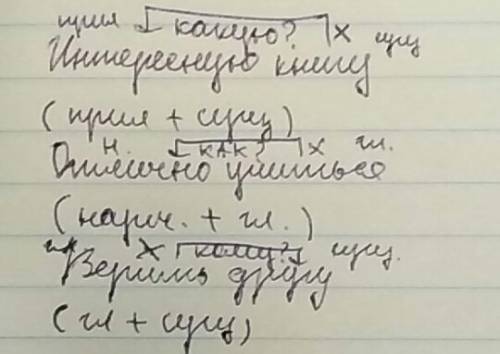 прил какую? х сущ
Интересную книгу
(прил + сущ)
Н. КАК? х гл.
Отлично учиться
(нареч. + гл.)
гл х кому? сущ.
Верить другу
(гл + сущ)